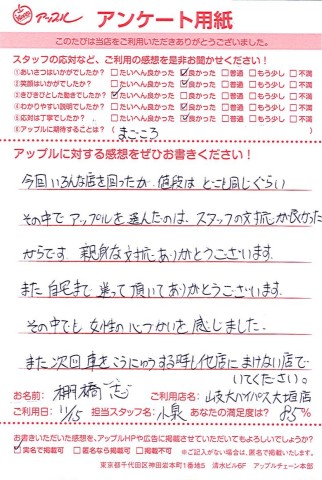 アップル アンケート用紙
このたびは当店をご利用いただきありがとうございました。
スタッフの応対など、ご利用の感想を是非お聞かせください！
①あいさつはいかがでしたか？ □たいへん良かった ☑良かった □普通 □もう少し □不満
②笑顔はいかがでしたか？ □たいへん良かった ☑良かった □普通 □もう少し □不満
③きびきびとした動きでしたか？ ☑たいへん良かった □良かった □普通 □もう少し □不満
④わかりやすい説明でしたか？ □たいへん良かった ☑良かった □普通 □もう少し □不満
⑤応対は丁寧でしたか？ □たいへん良かった ☑良かった □普通 □もう少し □不満
⑥アップルに期待することは？ ( まごころ )
アップルに対する感想をぜひお書きください！
今回いろんな店を回ったが、値段はどこも同じぐらい
その中でアップルを選んだのは、スタッフの対抗が良かった
からです 親身な対抗ありがとうございます。
また自宅まで送って頂いてありがとうございます。
その中でも女性の心づかいを感じました。
また次回車をこうにゅうする時も他店にまけない店で
いてください。
お名前： 棚橋 志 ご利用店名： 岐大ハイパス大垣店
ご利用日： 11/15 担当スタッフ名： 小泉 あなたの満足度は？ 85%
お書きいただいた感想を、アップルHPや広告に掲載させていただいてもよろしいでしょうか？
☑実名で掲載可 □匿名なら掲載可 □掲載不可 ※ご記入がない場合は、匿名にて掲載いたします。
東京都千代田区神田岩本町1番地5 清水ビル6F アップルチェーン本部